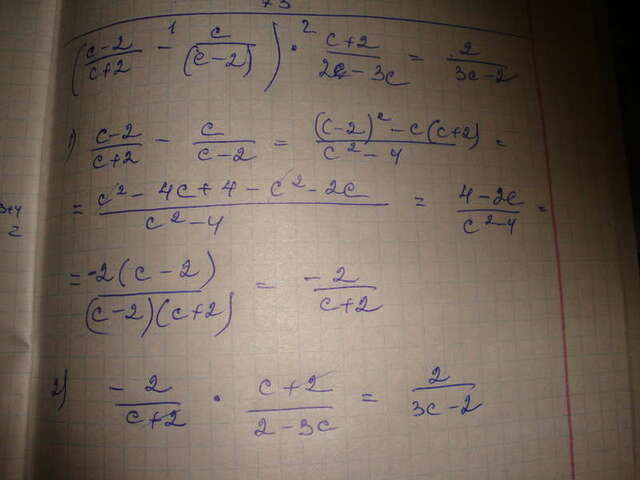 +3
(c-2/c+2 -¹ c/(c-2)) ·² c+2/2c-3c = 2/3c-2
1) c-2/c+2 - c/c-2 = (c-2)² - c(c+2)/c²-4 =
= c² - 4c + 4 - c² - 2c/c²-4 = 4-2c/c²-4 =
= -2(c-2)/(c-2)(c+2) = -2/c+2
2) -2/c+2 · c+2/2-3c = 2/3c-2